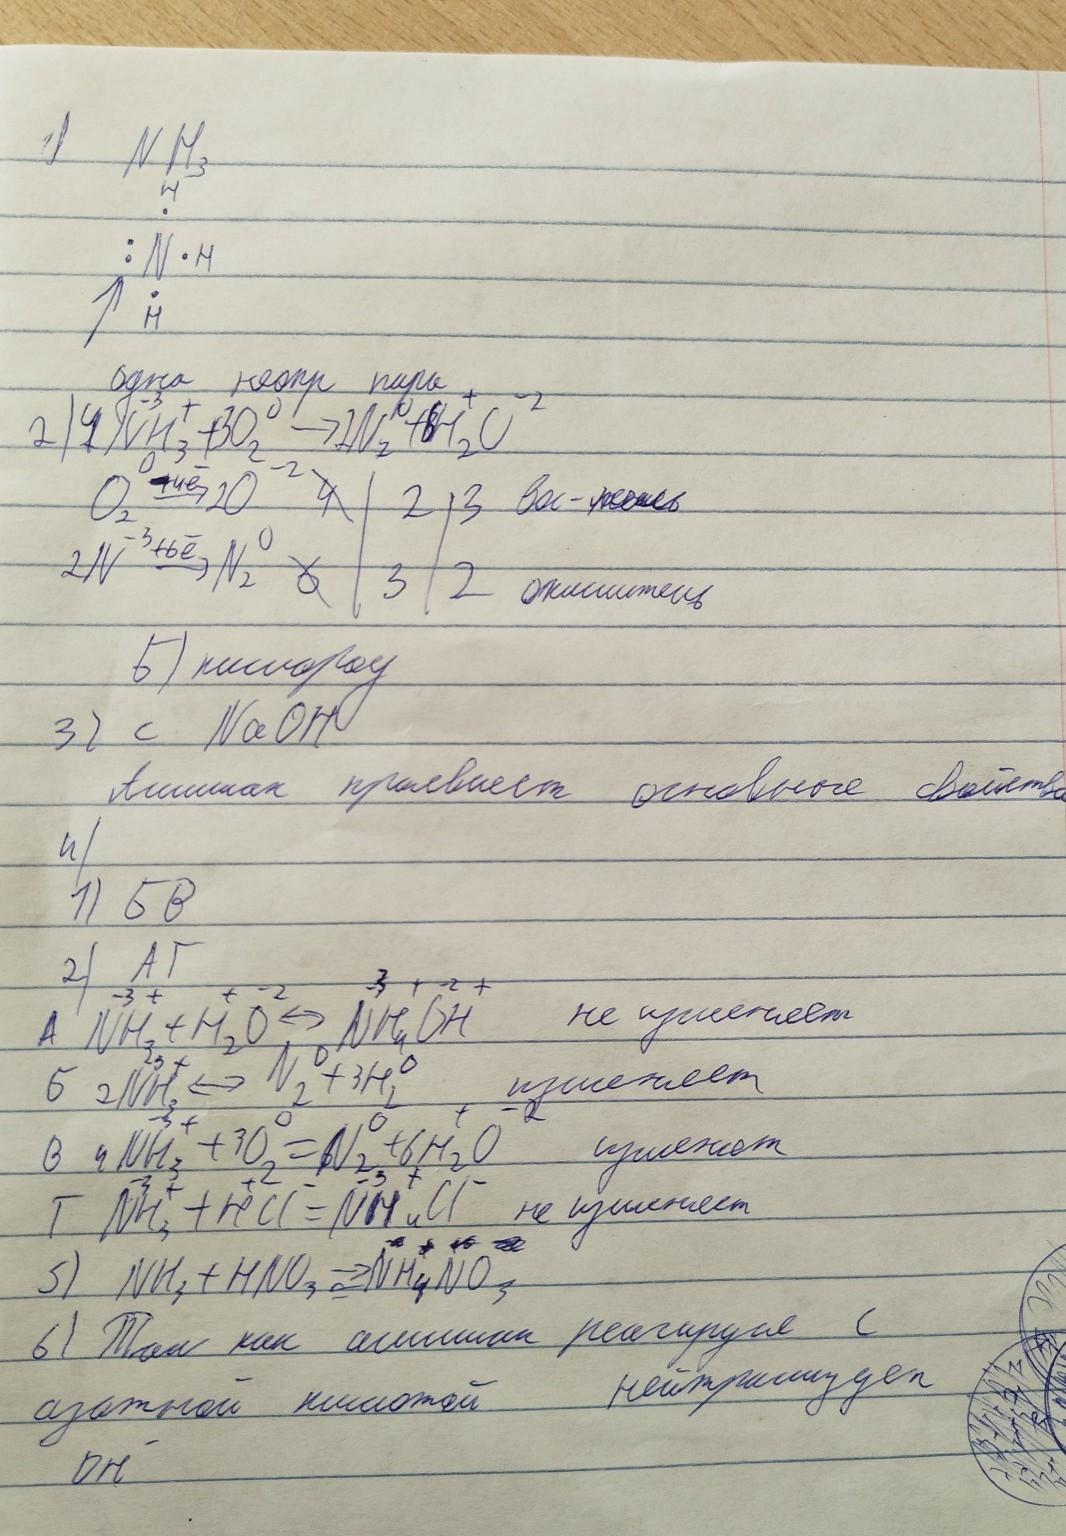 1) NH₃
H
·
: N · H
·
H
одна неопр пара
2) 4NH₃ + 3O₂ → 2N₂ + 6H₂O
-3 + 0 0 + -2
O₂⁰ +4ē → 2O⁻² 4 | 2 | 3
2N⁻³ +6ē → N₂⁰ 6 | 3 | 2 окислитель
Б) кислород
3) с NaOH
Аммиак проявляет основные свойства
4)
1) БВ
2) АГ
-3 + + -2 -3 + -2 +
А NH₃ + H₂O ⇔ NH₄OH не изменяет
Б 2NH₃ ⇔ N₂⁰ + 3H₂⁰ изменяет
-3 + 0 0 + -2
В 4NH₃ + 3O₂ = N₂ + 6H₂O изменяет
Г NH₃ + HCl = NH₄Cl не изменяет
5) NH₃ + HNO₃ → NH₄NO₃
6) Так как аммиак реагируя с
азотной кислотой
OH⁻